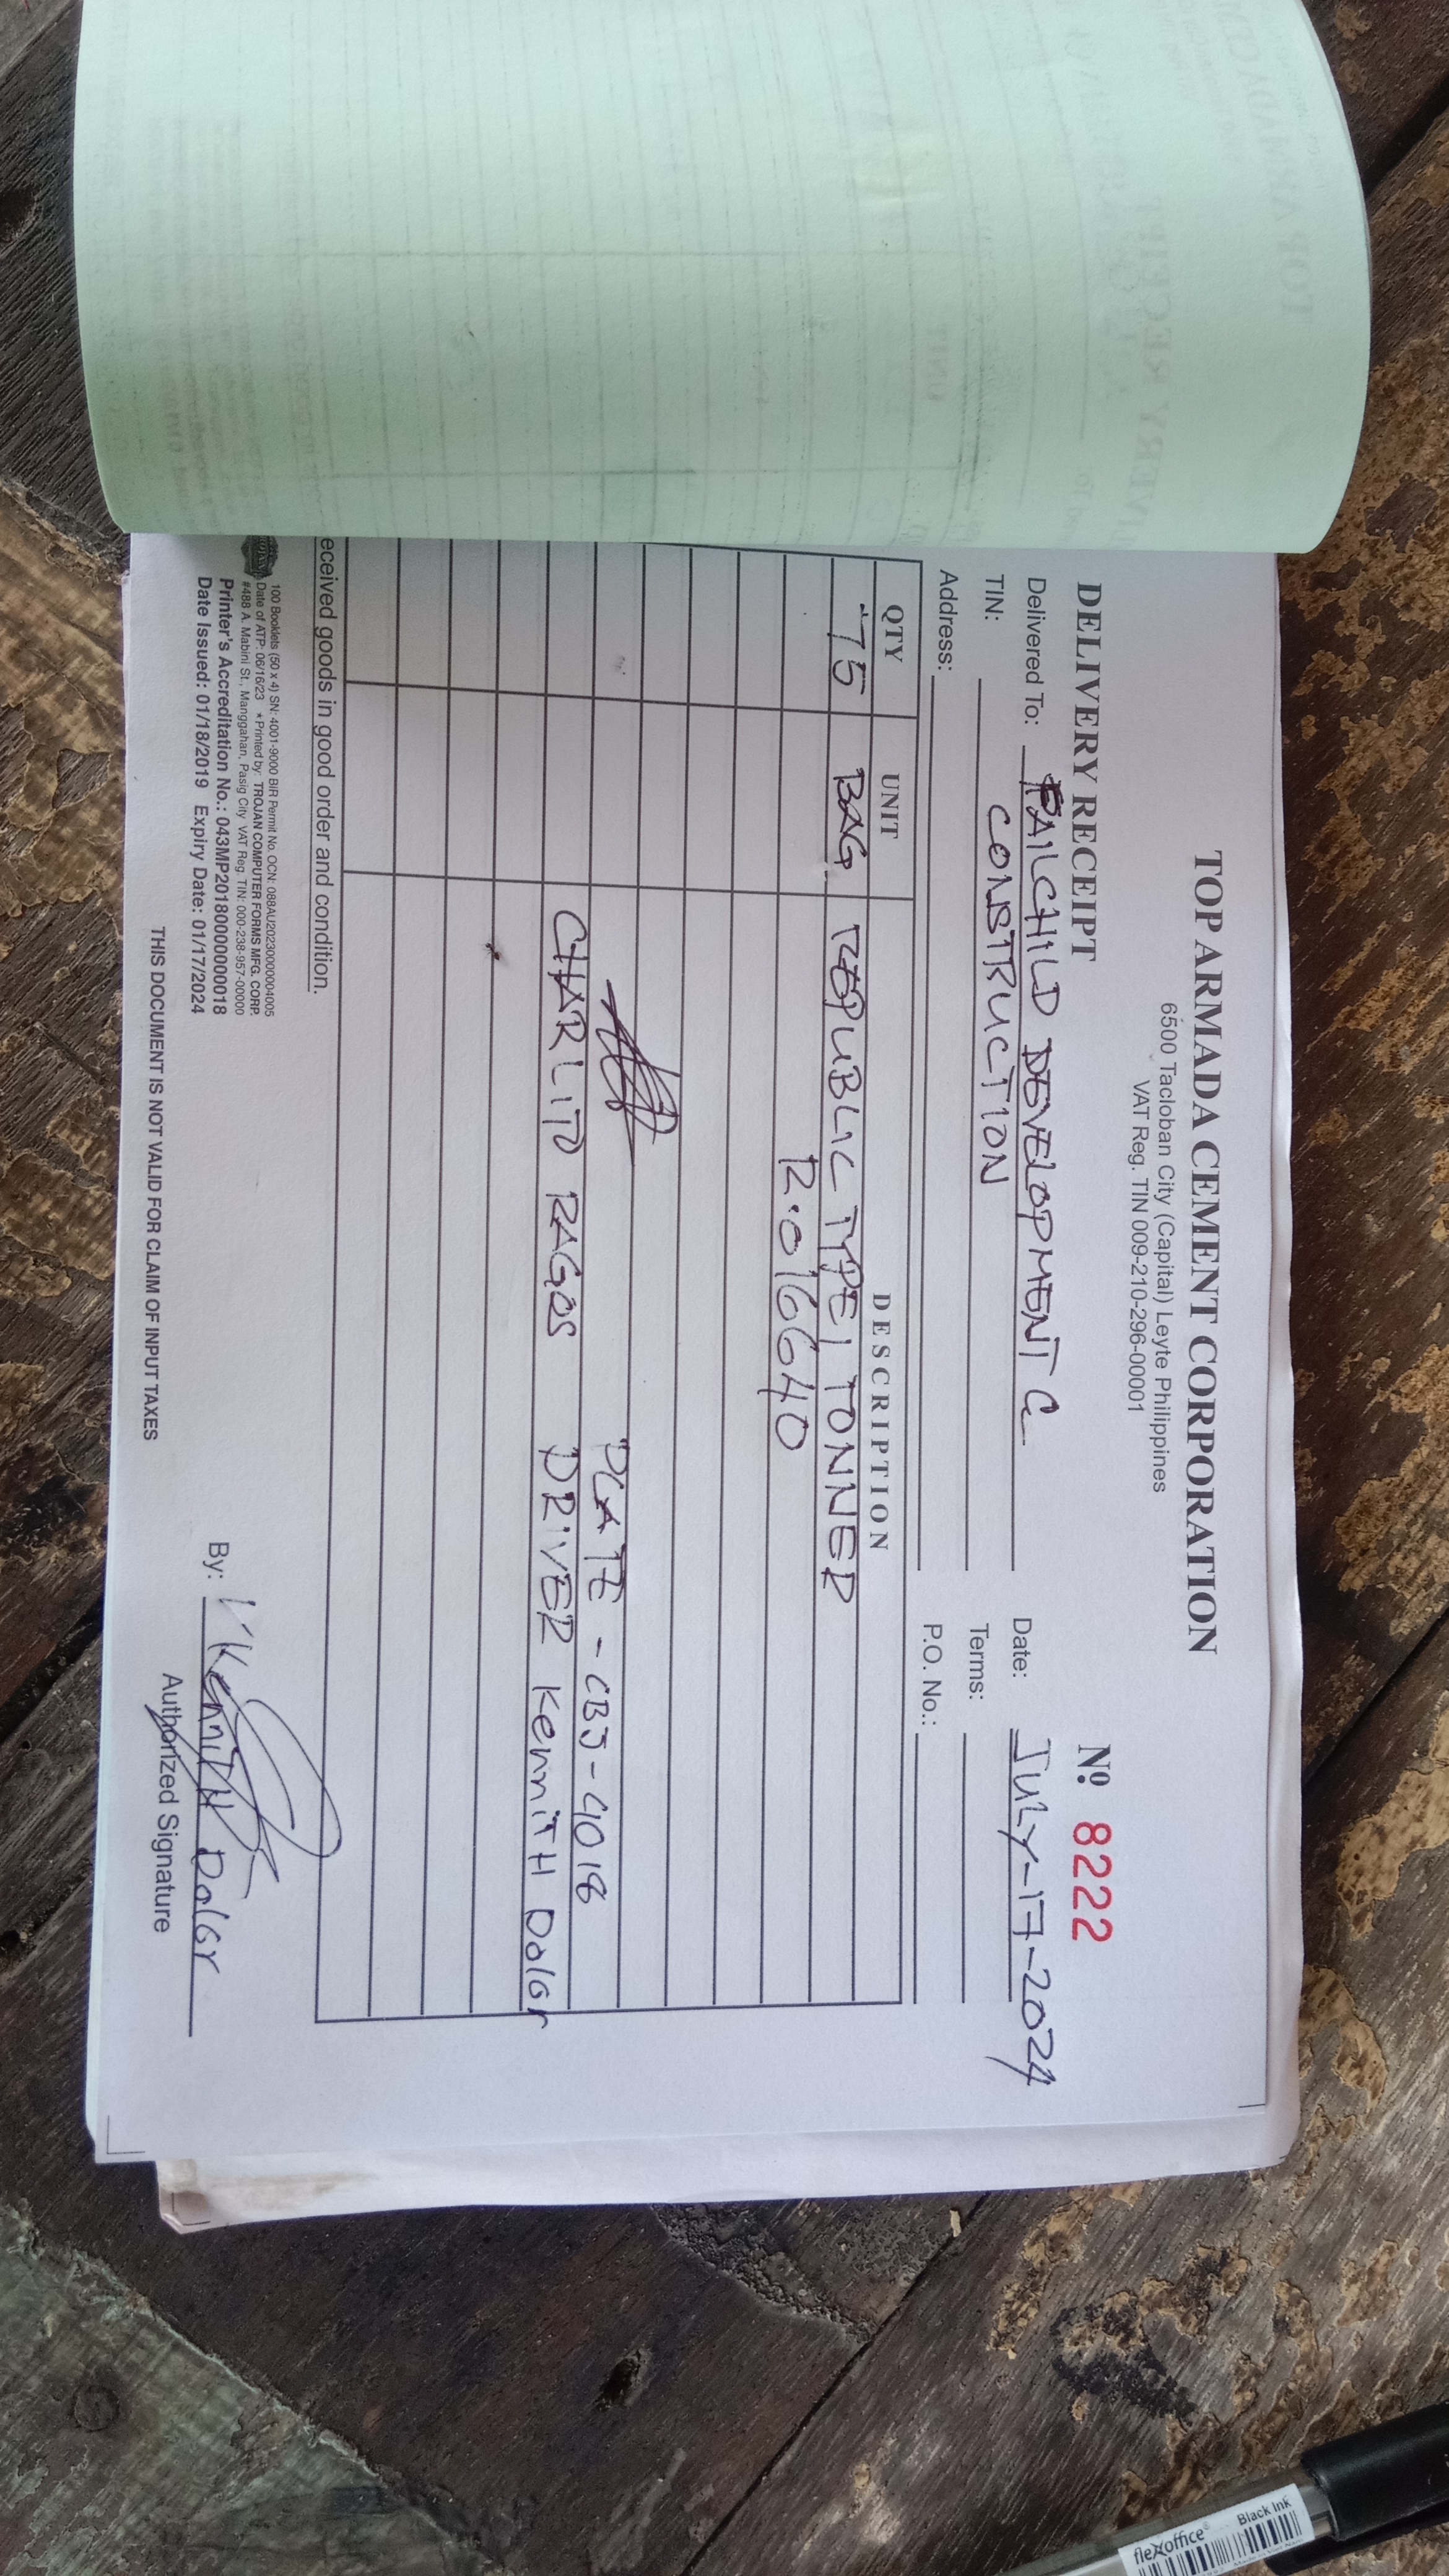 TOP ARMADA CEMENT CORPORATION
6500 Tacloban City (Capital) Leyte Philippines
VAT Reg. TIN 009-210-296-00001
DELIVERY RECEIPT
Nº 8222
Delivered To: FAILCHILD DEVELOPMENT &
Date: JULY-17-2024
TIN: CONSTRUCTION
Terms:
Address:
P.O. No.:
QTY UNIT DESCRIPTION
75 BAG REPUBLIC TYPE 1 TONNER
R.O 16640
PLATE - CBJ-4018
CHARLITO RAGOS DRIVER KenniTH Dolor
eceived goods in good order and condition.
100 Booklets (50 x 4) SN: 4001-9000 BIR Permit No. OCN: 088AU20230000004005
Date of ATP: 06/16/23 ★Printed by: TROJAN COMPUTER FORMS MFG. CORP.
#488 A. Mabini St., Manggahan, Pasig City VAT Reg. TIN: 000-238-957-00000
Printer's Accreditation No.: 043MP20180000000018
Date Issued: 01/18/2019 Expiry Date: 01/17/2024
By: KenniTH Dolor
Authorized Signature
THIS DOCUMENT IS NOT VALID FOR CLAIM OF INPUT TAXES
flexoffice Black Ink